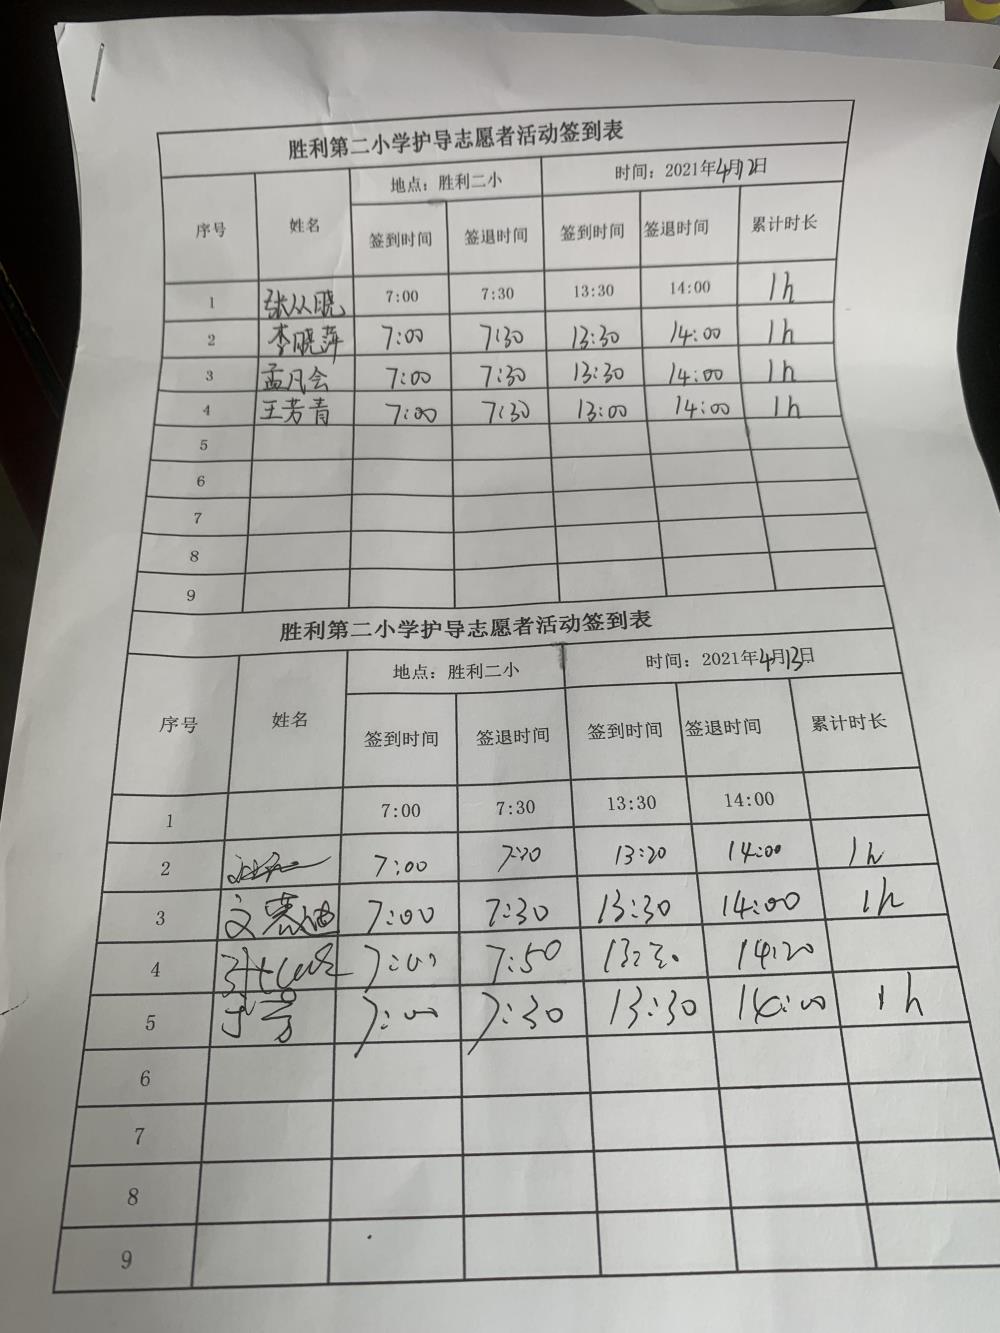 胜利第二小学护导志愿者活动签到表
序号 姓名 地点：胜利二小 时间：2021年4月12日
签到时间 签退时间 签到时间 签退时间 累计时长
1 张从晓 7:00 7:30 13:30 14:00 1h
2 李晓萍 7:00 7:30 13:30 14:00 1h
3 孟凡会 7:00 7:30 13:30 14:00 1h
4 王芳青 7:00 7:30 13:00 14:00 1h
5
6
7
8
9
胜利第二小学护导志愿者活动签到表
序号 姓名 地点：胜利二小 时间：2021年4月13日
签到时间 签退时间 签到时间 签退时间 累计时长
1 7:00 7:30 13:30 14:00
2 7:00 13:20 14:00 1h
3 7:00 7:30 13:30 14:00 1h
4 7:00 7:50 14:20
5 7:00 7:30 13:30 14:00 1h
6
7
8
9